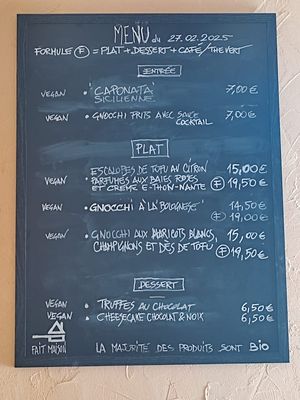 MENU du 27.02.2025
FORMULE F = PLAT + DESSERT + CAFÉ / THÉ VERT
ENTRÉE
VEGAN • "CAPONATA" SICILIENNE 7,00 €
VEGAN • GNOCCHI FRITS AVEC SAUCE COCKTAIL 7,00 €
PLAT
ESCALOPES DE TOFU AU CITRON 15,00 €
VEGAN • PARFUMÉES AUX BAIES ROSES F 19,50 €
ET CRÈME E-THON-NANTE
VEGAN • GNOCCHI À LA "BOLOGNESE" 14,50 €
F 19,00 €
VEGAN • GNOCCHI AUX HARICOTS BLANCS, 15,00 €
CHAMPIGNONS ET DÉS DE TOFU F 19,50 €
DESSERT
VEGAN • TRUFFES AU CHOCOLAT 6,50 €
VEGAN • CHEESECAKE CHOCOLAT & NOIX 6,50 €
FAIT MAISON LA MAJORITÉ DES PRODUITS SONT BIO